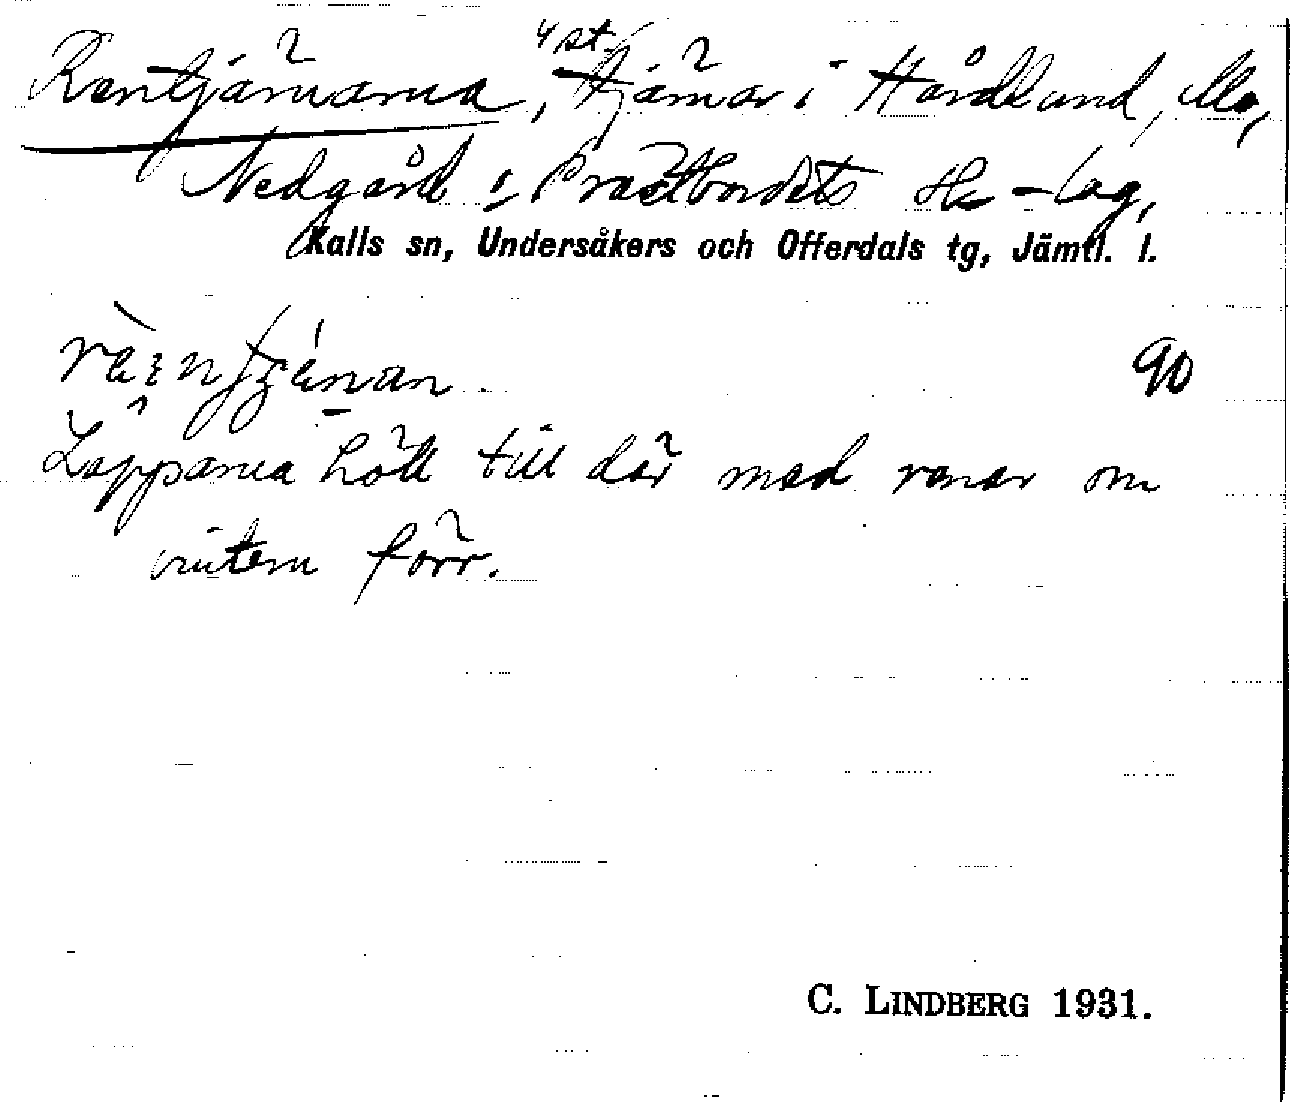 Rentjärnarna, 4 st. tjärnar i Hårdlund, Mo,
Nedgård i Prästbordets sk-lag,
Kalls sn, Undersåkers och Offerdals tg, Jämtl. l.
90
Lapparna höll till där med renar om
vintern förr.
C. LINDBERG 1931.